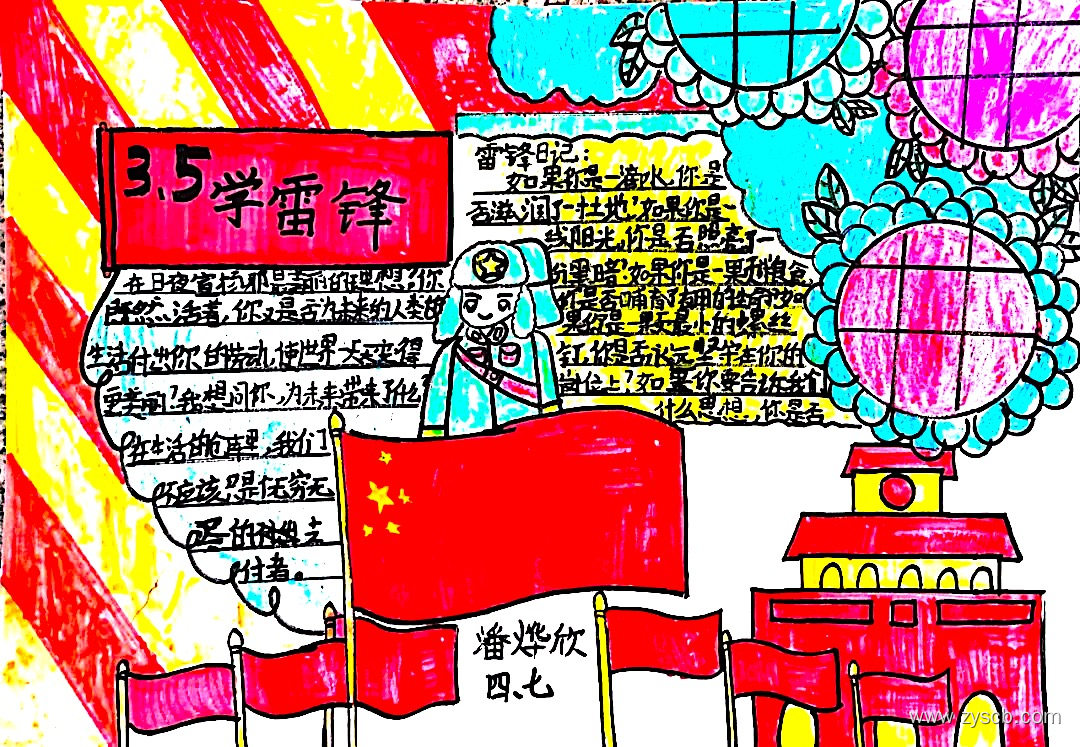 3.5学雷锋
雷锋日记:
如果你是一滴水,你是
否滋润了一土地?如果你是一
线阳光,你是否照亮了一
分黑暗?如果你是一颗粮食,
你是否哺育了有用的生命?如
果你是一颗最小的螺丝
钉,你是否永远坚守在你的
岗位上?如果你要告诉我们
什么思想,你是否
在日夜宣扬那最美丽的理想?你
既然活着,你又是否为未来的人类的
生活付出你的劳动,使世界一天天变得
更美丽?我想问你,为未来带来了什么
在生活的仓库里,我们
不应该只是个无穷无
尽的
付者。
潘烨欣
四、七
www.zyscb.com